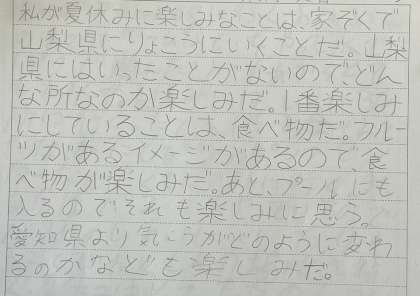 私が夏休みに楽しみなことは、家ぞくで
山梨県にりょこうにいくことだ。山梨
県にはいったことがないので、どん
な所なのか楽しみだ。1番楽しみ
にしていることは、食べ物だ。フルー
ツがあるイメージがあるので、食
べ物が楽しみだ。あと、プールにも
入るのでそれも楽しみに思う。
愛知県より気こうがどのように変わ
るのかなども楽しみだ。